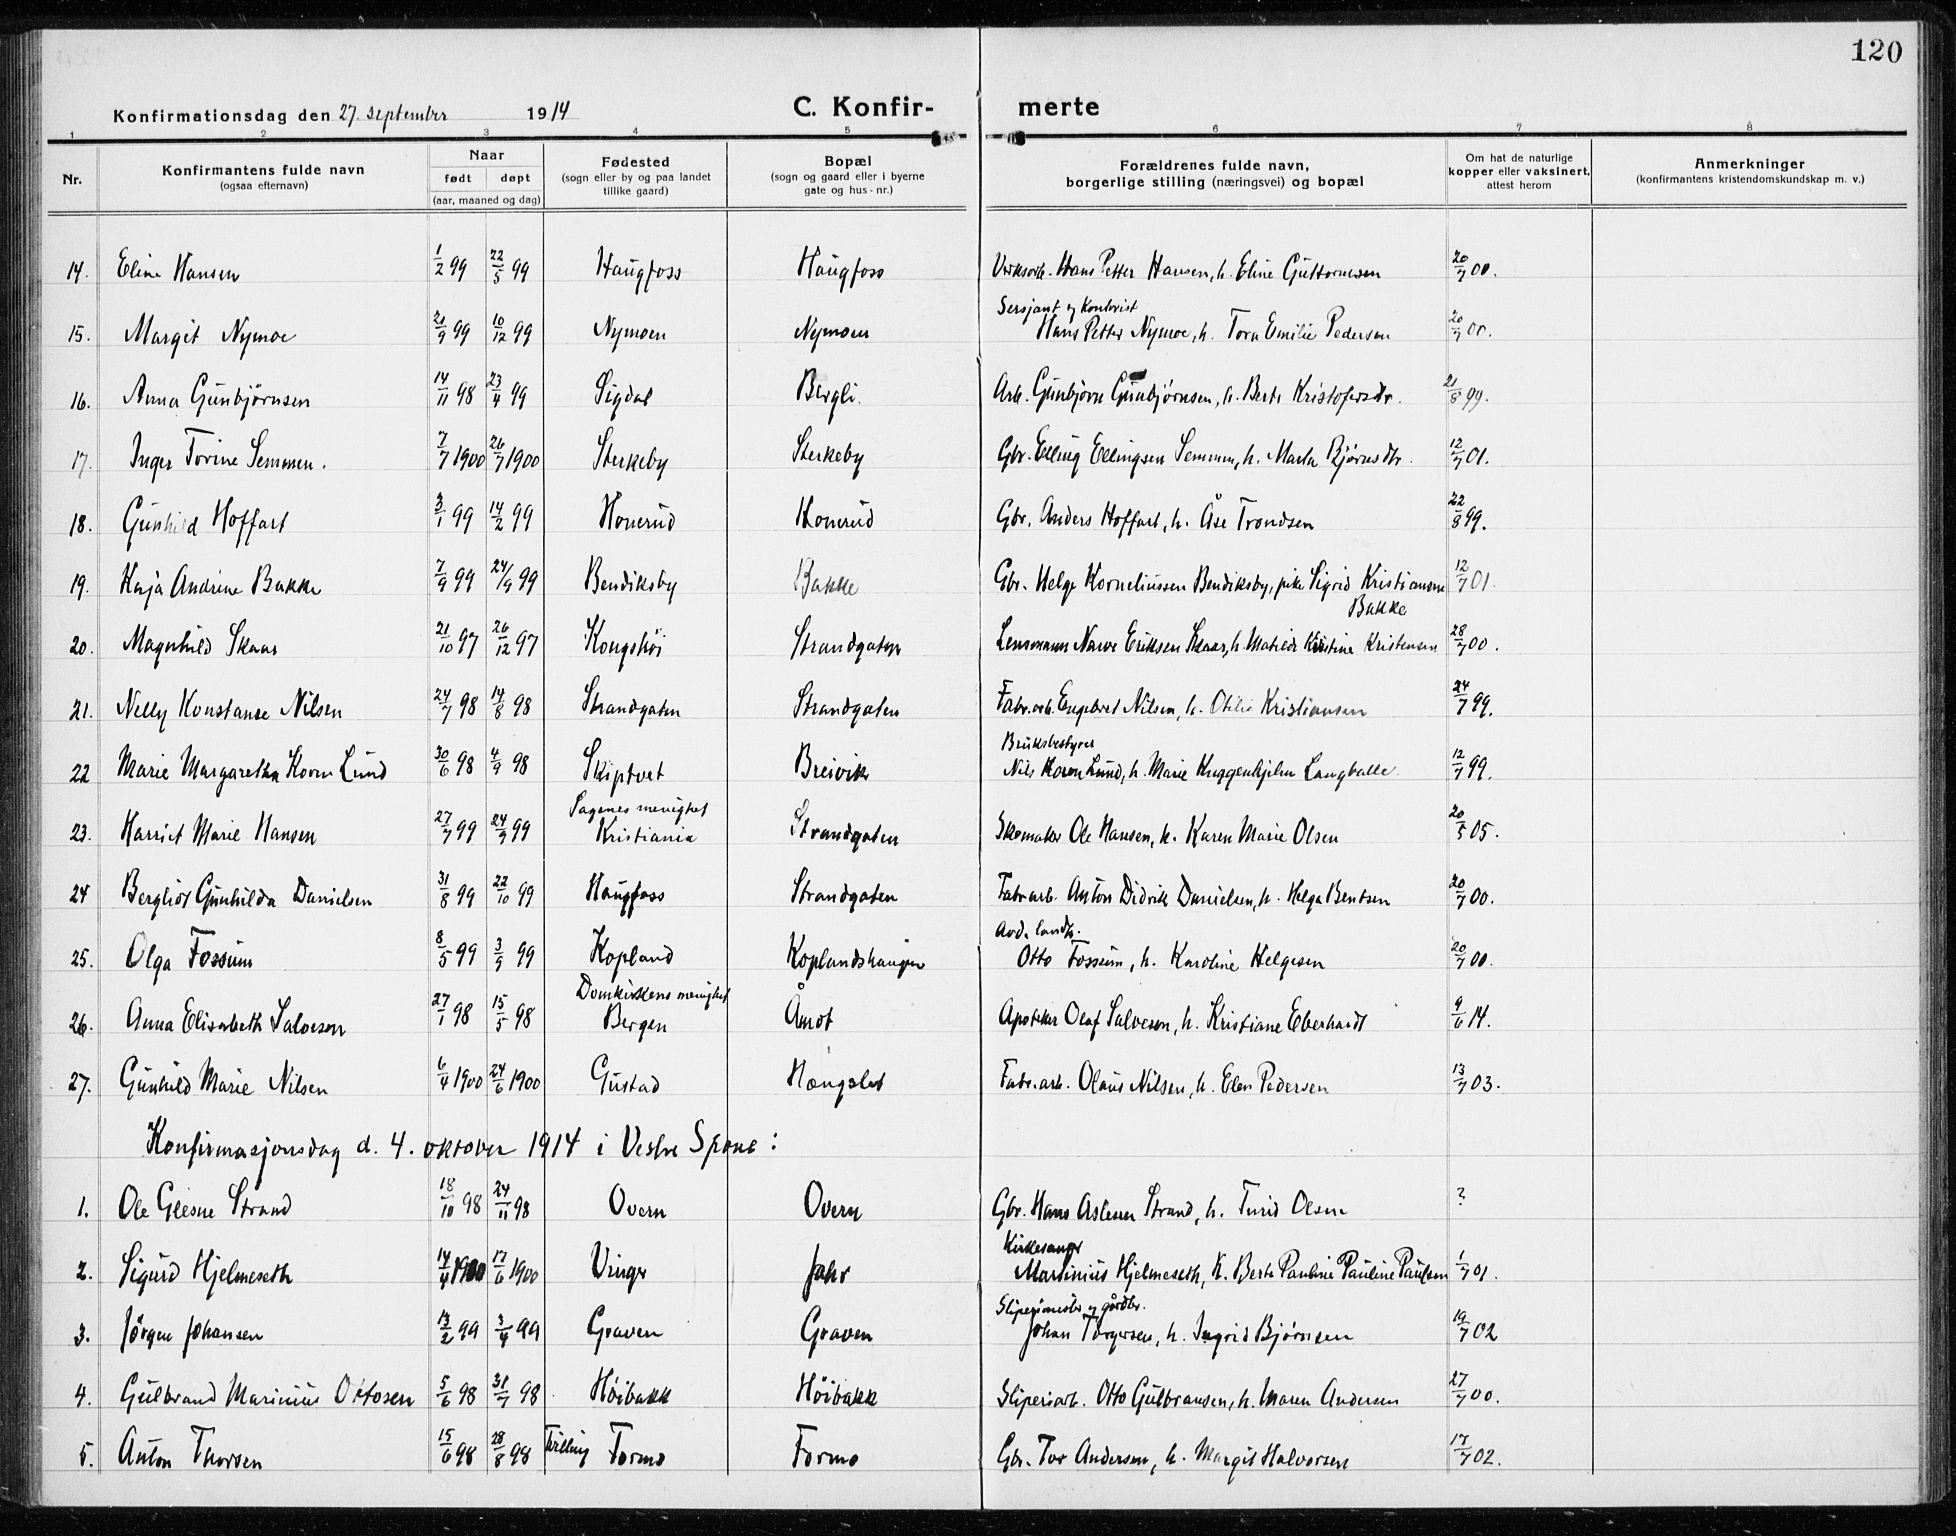 120
Konfirmationsdag den 27. september 1914 C. Konfir- merte
1 2 3 4 5 6 7 8
Nr. Konfirmantens fulde navn (ogsaa efternavn) Naar født døpt (aar, maaned og dag) Fødested (sogn eller by og paa landet tillike gaard) Bopæl (sogn og gaard eller i byerne gate og hus-nr.) Forældrenes fulde navn, borgerlige stilling (næringsvei) og bopæl Om hat de naturlige kopper eller vaksinert, attest herom Anmerkninger (konfirmantens kristendomskundskap m. v.)
14. Eline Hansen 1/2 99 22/5 99 Haugfoss Haugfoss Verksarb. Hans Petter Hansen, h. Eline Guttormsen 20/7 00.
Sersjant og Kontorist
15. Margit Nymoe 21/9 99 10/12 99 Nymoen Nymoen Hans Petter Nymoe, h. Tora Emilie Pedersen 20/7 00.
16. Anna Gunbjørnsen 14/11 98 23/4 99 Sigdal Bergli Arb. Gunbjørn Gunbjørnsen, h. Berte Kristofersdtr. 21/8 99.
17. Inger Torine Semmen. 7/7 1900 26/7 1900 Sterkeby Sterkeby Gbr. Elling Ellingsen Semmen, h. Marta Bjørnsdtr. 12/7 01.
18. Gunhild Hoffart 3/1 99 14/2 99 Honerud Honerud Gbr. Anders Hoffart, h. Åse Trondsen 22/8 99.
19. Kaja Andrine Bakke 7/9 99 24/9 99 Bendiksby Bakke Gbr. Helge Korneliussen Bendiksby, pike Sigrid Kristiansen 12/7 01.
Bakke
20. Magnhild Skaar 21/10 97 26/12 97 Kongshöi Strandgaten Lensmann Narve Eriksen Skaar, h. Matilde Kristine Kristensen 28/7 00.
21. Nelly Konstanse Nilsen 24/7 98 14/8 98 Strandgaten Strandgaten Fabr.arb. Engebret Nilsen, h. Otilie Kristiansen 24/7 99.
Bruksbestyrer
22 Marie Margaretha Koren Lund 30/6 98 4/9 98 Skiptvet Breivik Nils Koren Lund, h. Marie Langballe 12/7 99.
Sagenes menighet
23. Harriet Marie Hansen 27/7 99 24/9 99 Kristiania Strandgaten Skomaker Ole Hansen, h. Karen Marie Olsen 20/5 05.
24 Bergliot Gunhilda Danielsen 31/8 99 22/10 99 Haugfoss Strandgaten Fabr.arb. Anton Didrik Danielsen, h. Helga Bentsen 20/7 00.
landh.
25. Olga Fossum 8/5 99 3/9 99 Kopland Koplandshaugen Otto Fossum, h. Karoline Helgesen 20/7 00.
Domkirkens menighet
26. Anna Elisabeth Salvesen 27/1 98 15/5 98 Bergen Åmot Apoteker Olaf Salvesen, h. Kristiane Eberhardt 9/6 14.
27. Gunhild Marie Nilsen 6/4 1900 24/6 1900 Gustad Hængslet Fabr.arb. Olaus Nilsen, h. Elen Pedersen 13/7 03.
Konfirmasjonsdag d. 4. oktober 1914 i Vestre Spone:
1. Ole Glesne Strand 18/10 98 24/11 98 Overn Overn Gbr. Hans Aslesen Strand, h. Turid Olsen ?
Kirkesanger
2. Sigurd Hjelmeseth 14/4 1900 17/6 1900 Vinger Jahr Martinius Hjelmeseth, h. Berte Pauline Pauline Paulsen 1/7 01.
Sliperimester og gårdbr.
3. Jörgen Johansen 13/2 99 3/4 99 Graven Graven Johan Torgersen, h. Ingrid Bjørnsen 19/7 02
4. Gulbrand Marinius Ottosen 5/6 98 31/7 98 Höibakk Höibakk Sliperiarb. Otto Gulbransen, h. Maren Andersen 27/7 00.
5. Anton Thorsen 15/6 98 28/8 98 Tvilling Formo Formo Gbr. Tor Andersen, h. Margit Halvorsen 17/7 02.